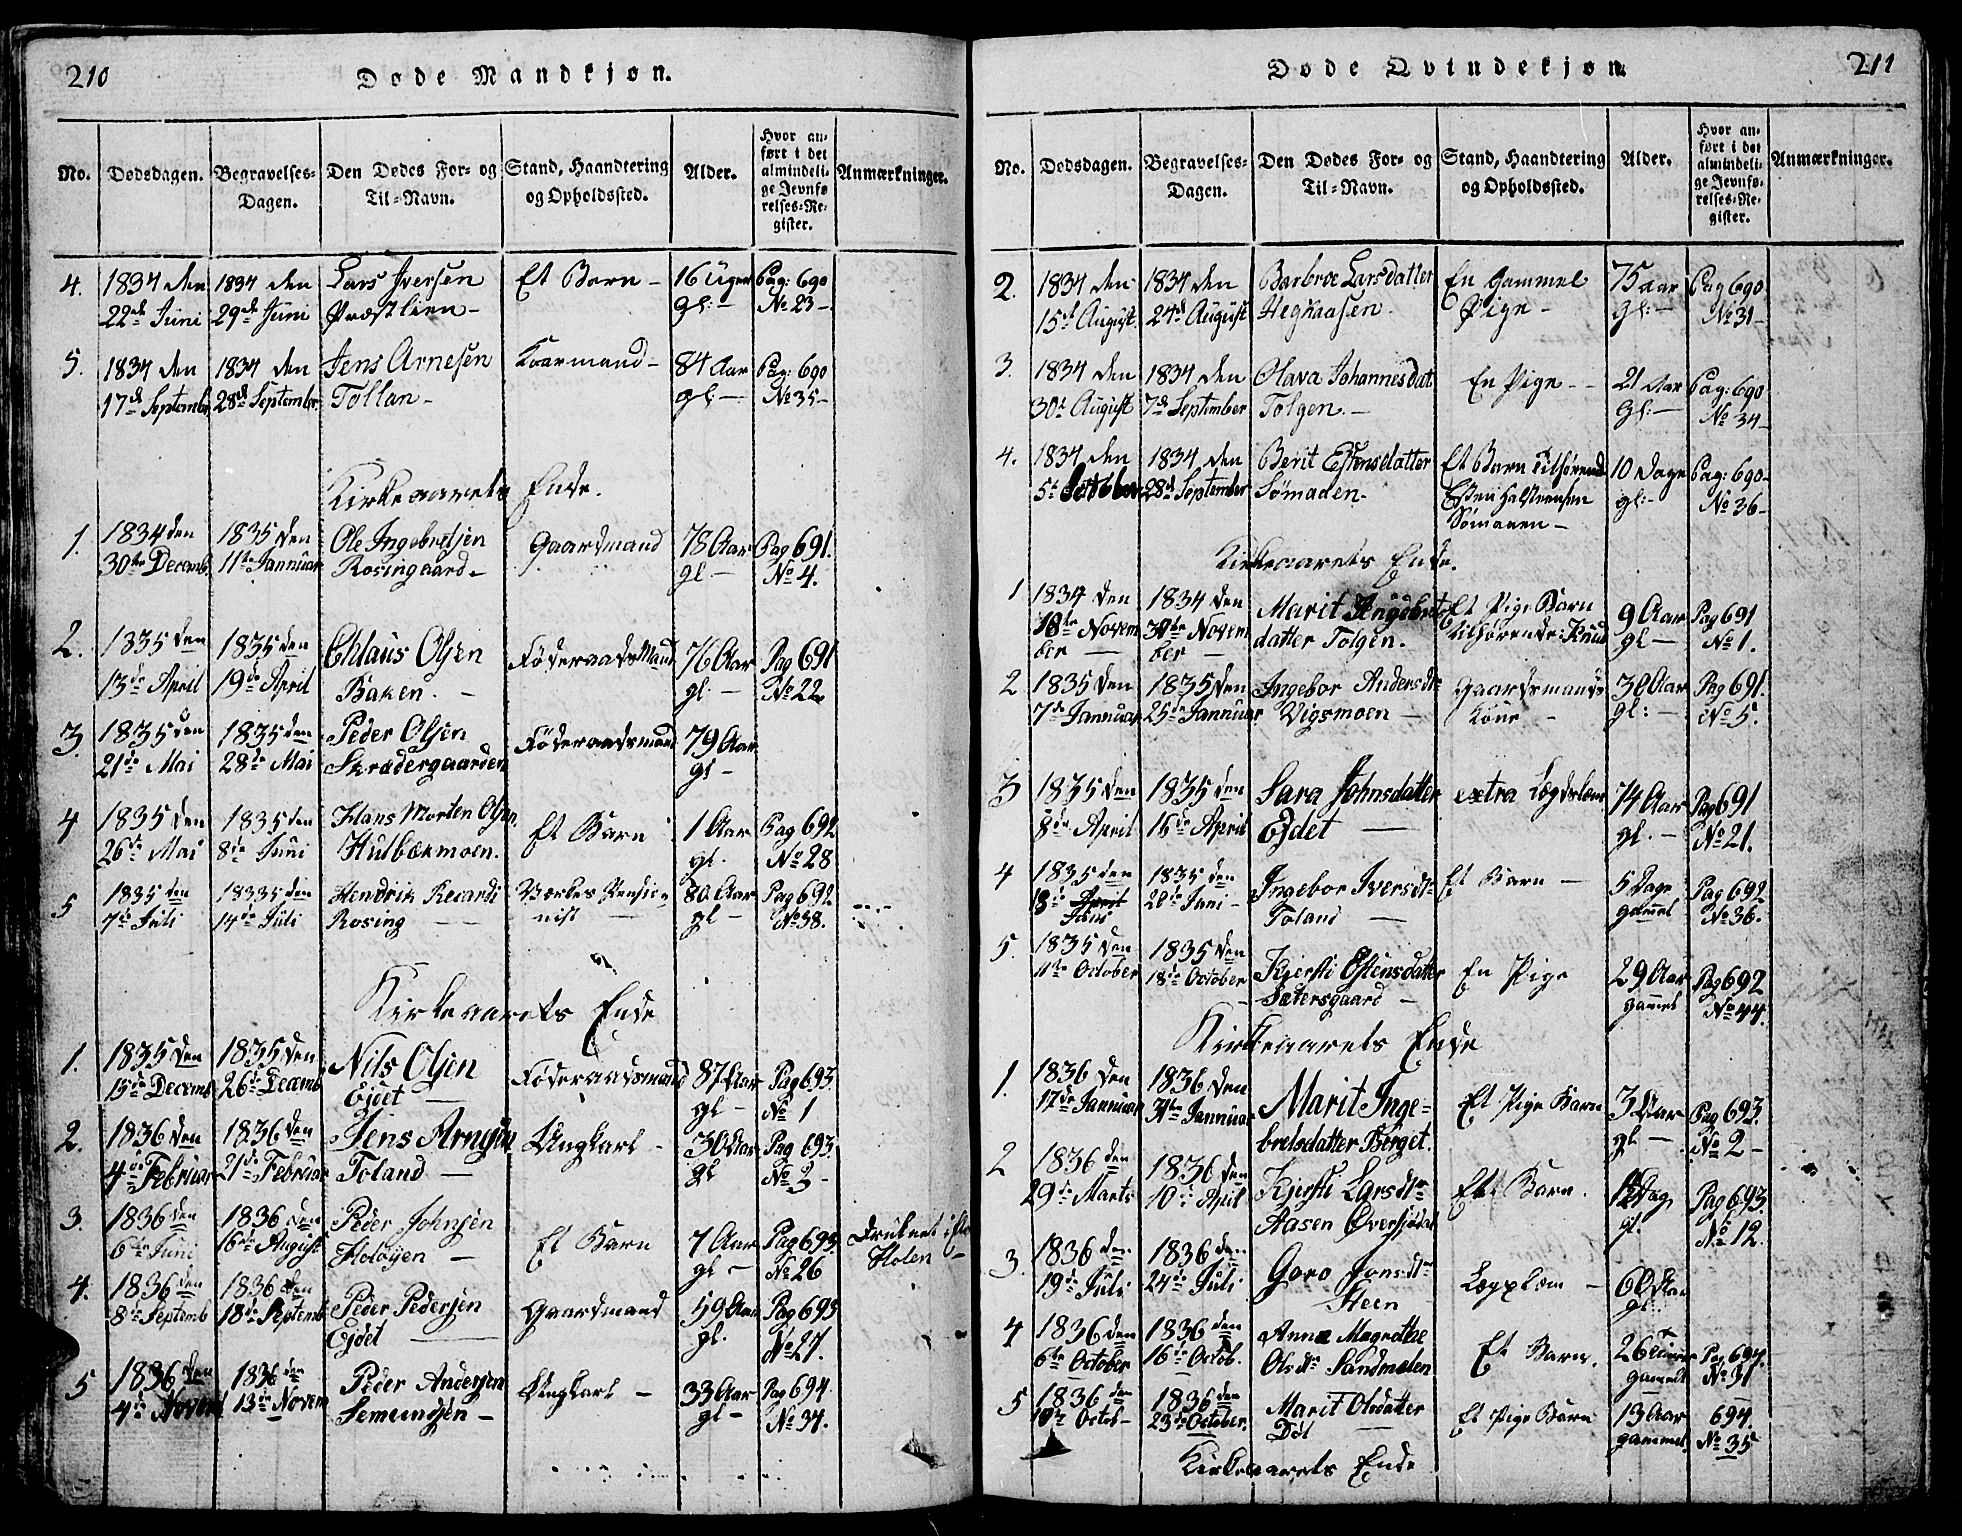 210
Døde Mandkjøn.
No.
Dødsdagen.
Begravelses-
Dagen.
Den Dødes For- og
Til-Navn.
Stand, Haandtering
og Opholdssted.
Alder.
Hvor an-
ført i det
almindeli-
ge Jevnfø-
relses-Re-
gister.
Anmærkninger.
4. 1834 den 1834 den Lars Iversen Et Barn - 16 Uger Pag: 690
22de Juni 29de Juni Præstlien - gl: - No 23 -
5. 1834 den 1834 den Jens Arnesen 84 Aar Pag: 690
17de Septembr 28de Septembr Tollan - gl: - No 35 -
Kirkeaarets Ende.
1. 1834 den 1835 den Ole Ingebretsen Gaardmand 78 Aar Pag 691.
30te Decemb. 11te Jannuar Rosingaard - gl - No 4.
2. 1835 den 1835 den Chlaus Olsen Føderaadsmand 76 Aar Pag 691
13de April 19de April Bakken. - gl. - No 22
3. 1835 den 1835 den Peder Olsen Føderaadsmand 79 Aar
21de Mai 28de Mai Skradergaarden gl -
4 1835 den 1835 den Hans Morten Olsen Et Barn 1 Aar Pag 692
26de Mai 8de Juni Hulbækmoen. gl. No 28
5 1835 den 18335 den Hendrik Recardi Værkes Pensio- 80 Aar Pag 692
7de Juli 14de Juli Rosing - nist - gl - No 38.
Kirkeaarets Ende
1. 1835 den 1835 den Nils Olsen Føderaadsmand 87 Aar Pag 693.
15de Decemb 26de Decemb Ejdet - gl - No 1
2. 1836 den 1836 den Jens Arnesen Ungkarl - 30 Aar Pag 693.
4de Februar 21de Februar Toland - gl No 3 -
3. 1836 den 1836 den Peder Johnsen Et Barn 7 Aar Pag 693. Druknet i
6te Juni 16de August Holøyen - gl - No 26 Holen -
4. 1836 den 1836 den Peder Pedersen Gaardmand 59 Aar Pag 693
8de Septemb 18de Septemb Ejdet - gl. No 27.
5 1836 den 1836 den Peder Andersen Ungkarl - 33 Aar Pag 694.
4de Novem 13de Novem Semundsen - gl - No 34.
211
Døde Qvindekjøn.
No.
Dødsdagen.
Begravelses-
Dagen.
Den Dødes For- og
Til-Navn.
Stand, Haandtering
og Opholdssted.
Alder.
Hvor an-
ført i det
almindeli-
ge Jevnfø-
relses-Re-
gister.
Anmærkninger.
2. 1834 den 1834 den Barbroe Larsdatter En Gammel 75 Aar Pag 690
15de August 24de August Heghaasen. Pige - gl: - No 31 -
3. 1834 den 1834 den Olava Johannesdat En Pige - - 21 Aar Pag: 690
30te August 7de September Tolgen. - gl: - No 34 -
4. 1834 den 1834 den Berit Estensdatter Et Barn tilhørende 10 Dage Pag: 690 -
5te October 28de September Sømaden - Esten Halstensen gl: - No 36 -
Sømaden -
Kirkeaarets Ende.
1 1834 den 1834 den Marit Ingebrets Et Pige Barn 9 Aar Pag 691
Novem Novem datter Tolgen. tilhørende: Knud gl - No 1.
ber - ber -
2 1835 den 1835 den Ingebor Andersdtr Gaardmands 38 Aar Pag 691.
7de Jannuar 25de Jannuar Vigsmoen - Kone - gl: - No 5.
3 1835 den 1835 den Sara Johnsdatter extra Lægdslem 74 Aar Pag 691
8de April 16de April Ejdet - gl. - No 21.
4 1835 den 1835 den Ingebor Iversdtr Et Barn - 5 Dage Pag 692
18de April 28de Juni - Toland - gammel No 36.
Juni
5. 1835 den 1835 den Kjersti Estensdatter En Pige 29 Aar Pag 692
11te October 18de October Sætersgaard - gammel No 44.
Kirkeaarets Ende
1. 1836 den 1836 den Marit Inge- Et Pige Barn 3 Aar Pag 693.
17de Jannuar 31te Jannuar bretsdatter Berget. gl - No 2 -
2 1836 den 1836 den Kjersti Larsdtr Et Barn. Dag Pag 693
29de Marts 10de April Aasen Øversjødal gl. No 12.
3. 1836 den 1836 den Goro Jonsdtr Lægslem - 60 Aar
19de Juli 24de Juli Steen gl.
4 1836 den 1836 den Anne Magrethe Et Barn. 26 Pag 694.
6te October 16de Octob. Olsdtr Sandmælen gammel No 31
5 1836 den 1836 den Marit Olsdatter Et Pige Barn 13 Aar 694.
Octob - 23de October. Døl - gammel. No 35
Kirkeaarets Ende